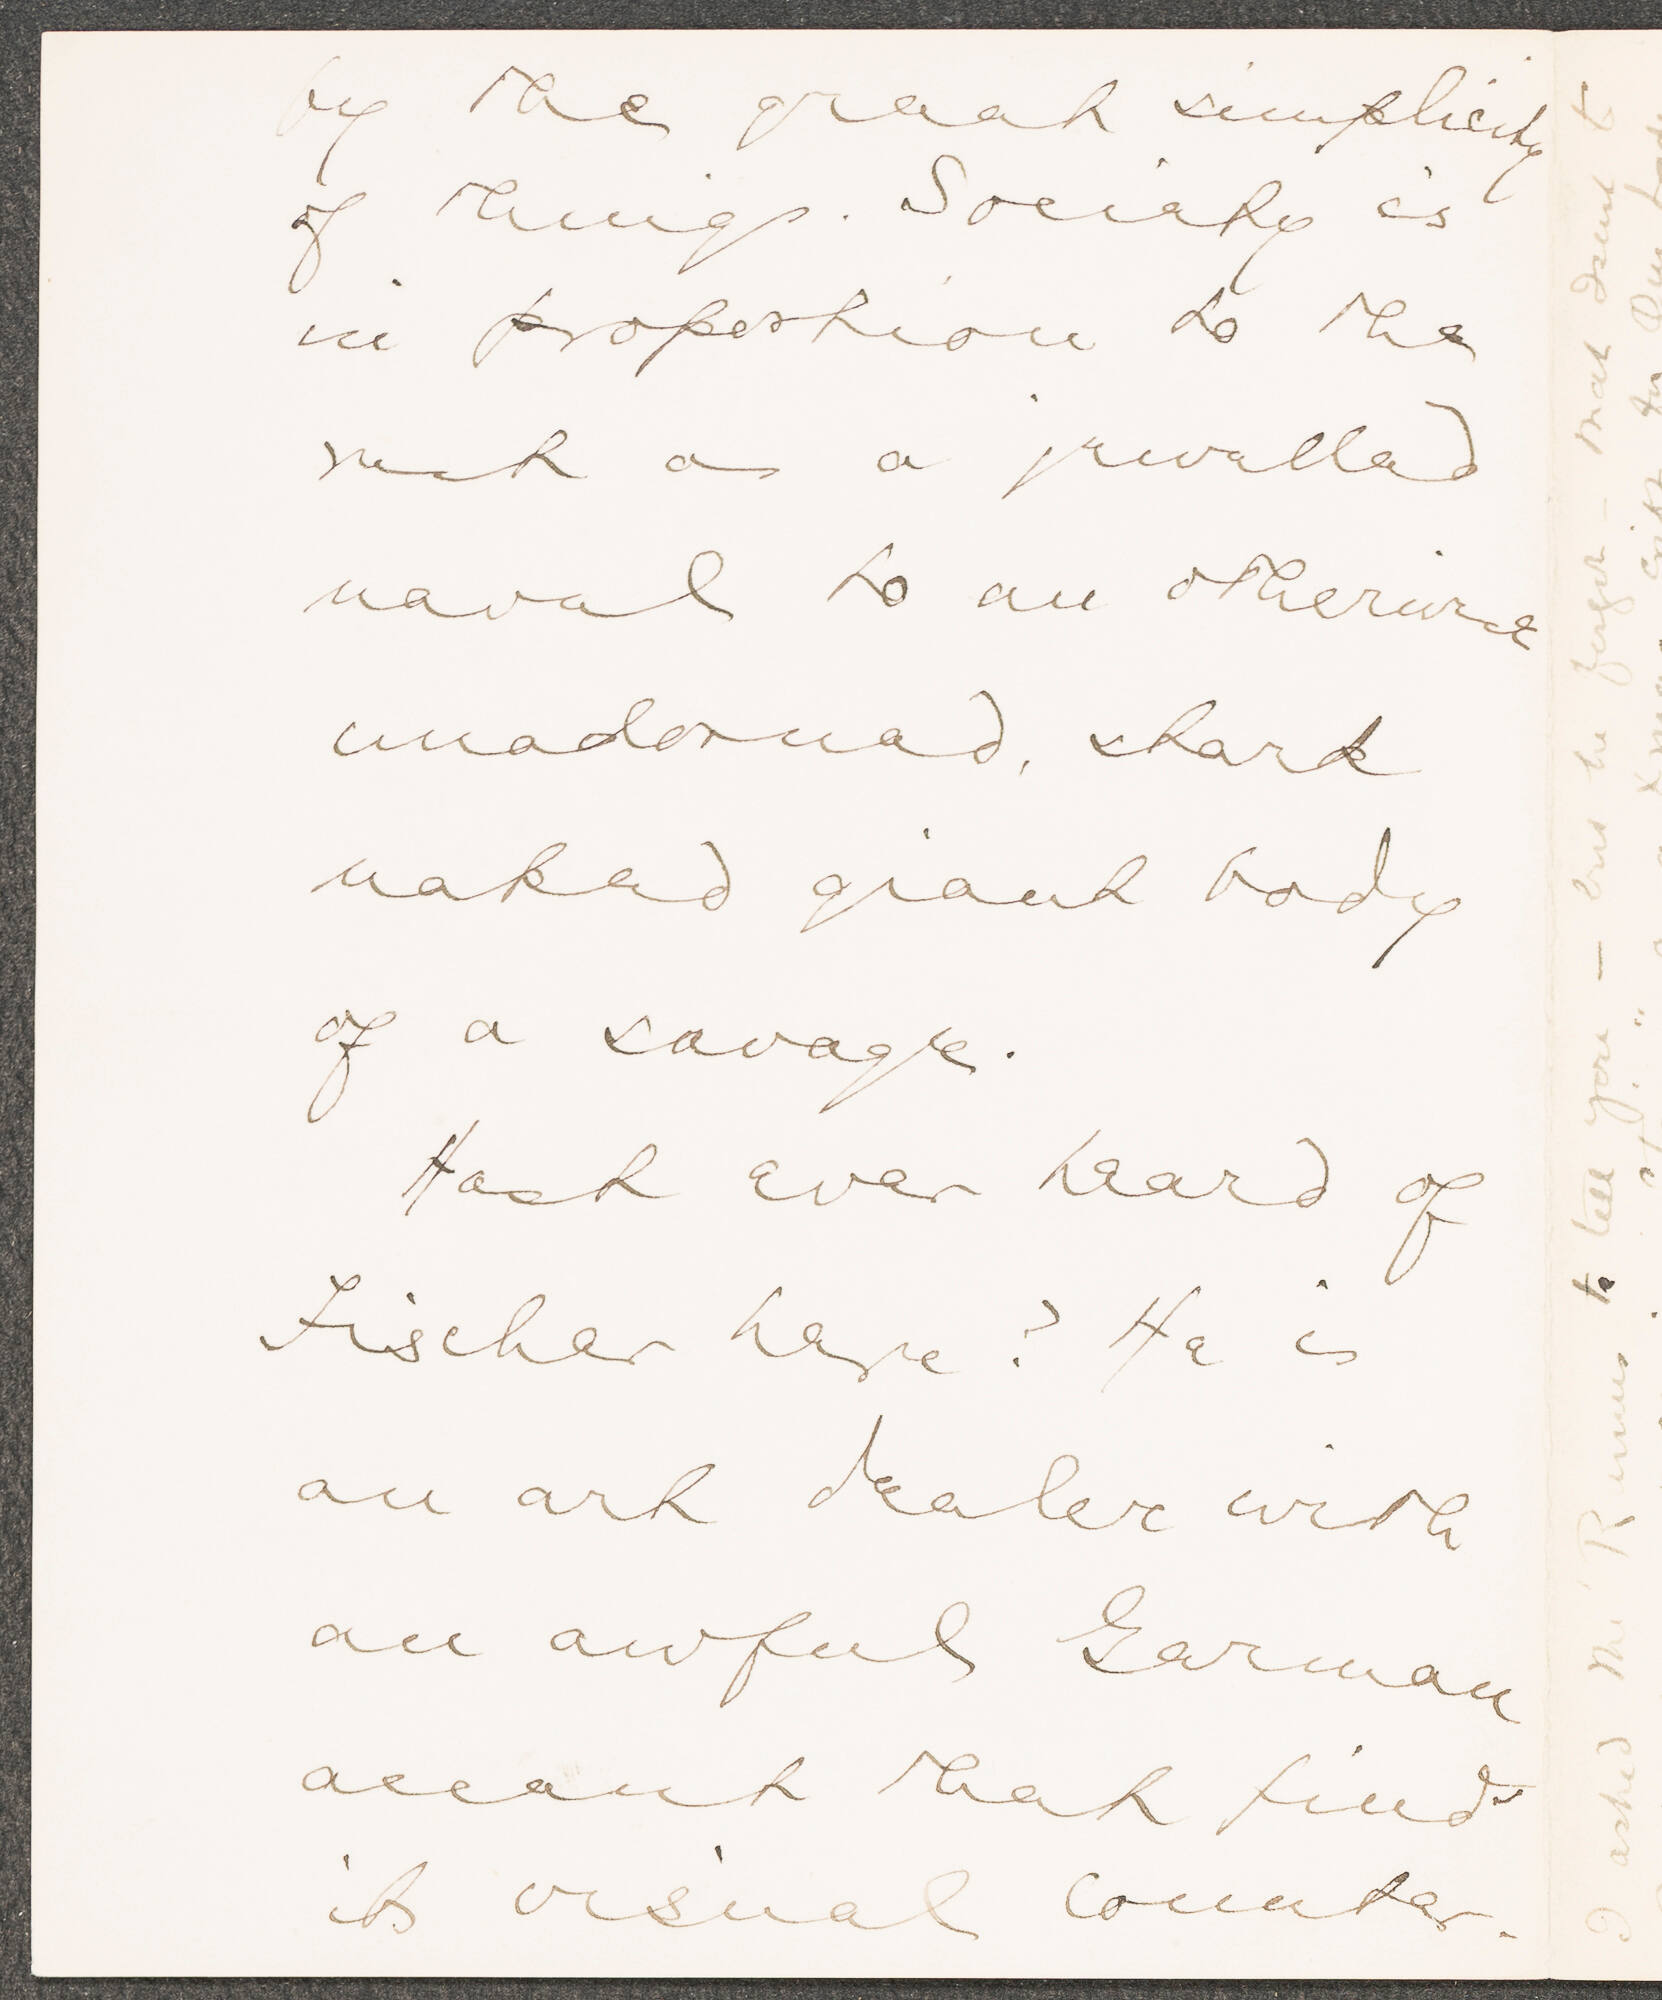 by the great simplicity
of things. Society is
in proportion to the
rest as a jewelled
navel to an otherwise
unadorned, stark
naked giant body
of a savage.
Hast ever heard of
Fischer here? He is
an art dealer with
an awful German
accent that finds
its visual counter-
I asked Mr Rinus to tell you — but he forgot — that I sent t